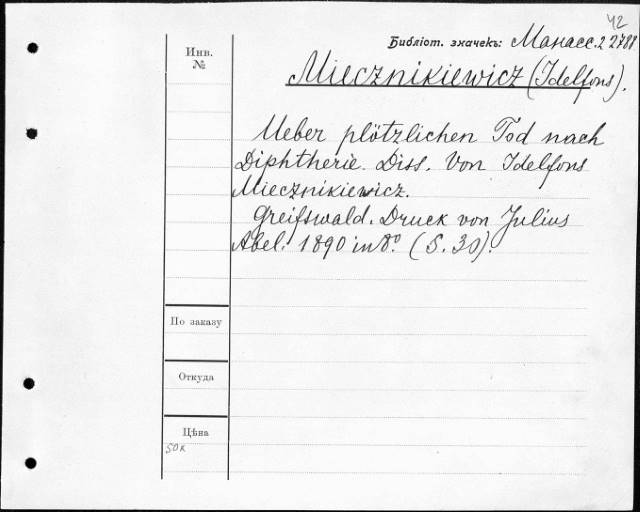 42
Библіот. значекъ: Манасс. 2 2788
Инв.
№
Miecznikiewicz (Idelfons).
Ueber plötzlichen Tod nach
Diphtherie. Diss. Von Idelfons
Miecznikiewicz.
Greifswald. Druck von Julius
Abel. 1890 in 8º. (S. 30).
По заказу
Откуда
Цѣна
50 к